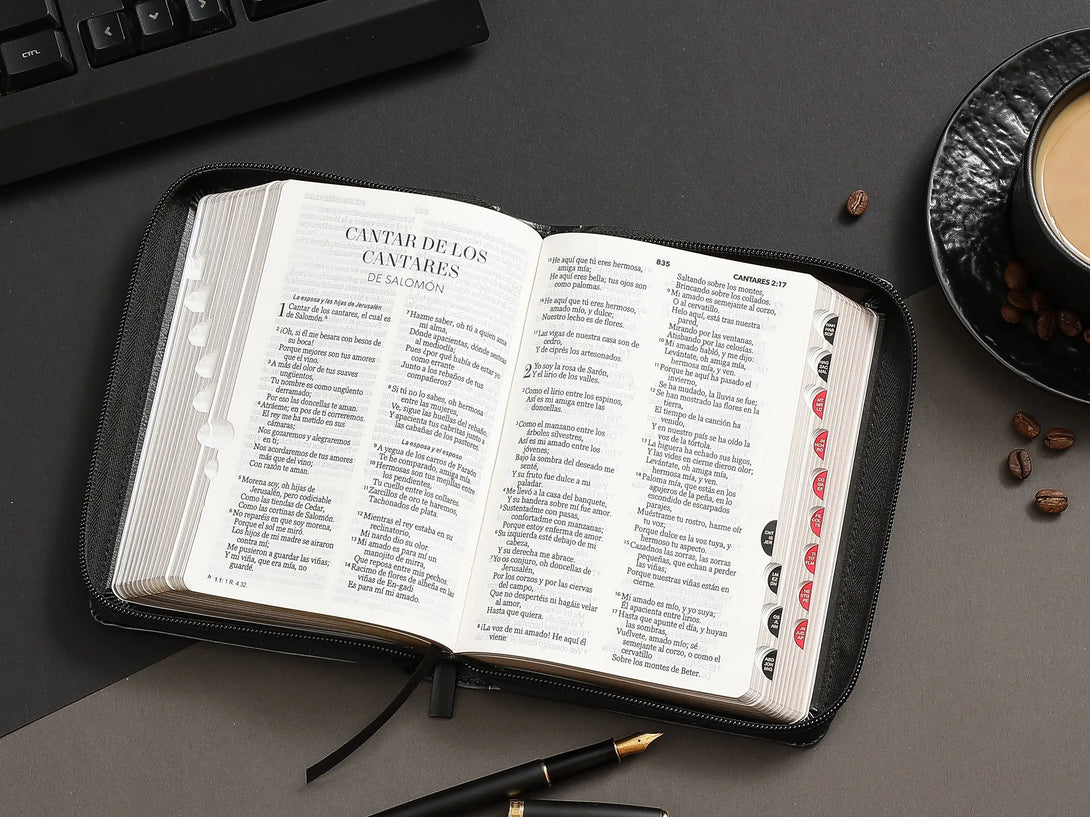 CTRL
CANTAR DE LOS
CANTARES
DE SALOMÓN
La esposa y las hijas de Jerusalén
1 Cantar de los cantares, el cual es
de Salomón.ᵃ
2 ¡Oh, si él me besara con besos de
su boca!
Porque mejores son tus amores
que el vino.
3 A más del olor de tus suaves
ungüentos,
Tu nombre es como ungüento
derramado;
Por eso las doncellas te aman.
4 Atráeme; en pos de ti correremos.
El rey me ha metido en sus
cámaras;
Nos gozaremos y alegraremos
en ti;
Nos acordaremos de tus amores
más que del vino;
Con razón te aman.
5 Morena soy, oh hijas de
Jerusalén, pero codiciable
Como las tiendas de Cedar,
Como las cortinas de Salomón.
6 No reparéis en que soy morena,
Porque el sol me miró.
Los hijos de mi madre se airaron
contra mí;
Me pusieron a guardar las viñas;
Y mi viña, que era mía, no
guardé.
a. 1.1: 1 R. 4.32.
7 Hazme saber, oh tú a quien ama
mi alma,
Dónde apacientas, dónde sesteas
al mediodía;
Pues ¿por qué había de estar yo
como errante
Junto a los rebaños de tus
compañeros?
8 Si tú no lo sabes, oh hermosa
entre las mujeres,
Ve, sigue las huellas del rebaño,
Y apacienta tus cabritas junto a
las cabañas de los pastores.
La esposa y el esposo
9 A yegua de los carros de Faraón
Te he comparado, amiga mía.
10 Hermosas son tus mejillas entre
los pendientes,
Tu cuello entre los collares.
11 Zarcillos de oro te haremos,
Tachonados de plata.
12 Mientras el rey estaba en su
reclinatorio,
Mi nardo dio su olor.
13 Mi amado es para mí un
manojito de mirra,
Que reposa entre mis pechos.
14 Racimo de flores de alheña en las
viñas de En-gadi
Es para mí mi amado.
835
CANTARES 2:17
15 He aquí que tú eres hermosa,
amiga mía;
He aquí eres bella; tus ojos son
como palomas.
16 He aquí que tú eres hermoso,
amado mío, y dulce;
Nuestro lecho es de flores.
17 Las vigas de nuestra casa son de
cedro,
Y de ciprés los artesonados.
2 Yo soy la rosa de Sarón,
Y el lirio de los valles.
2 Como el lirio entre los espinos,
Así es mi amiga entre las
doncellas.
3 Como el manzano entre los
árboles silvestres,
Así es mi amado entre los
jóvenes;
Bajo la sombra del deseado me
senté,
Y su fruto fue dulce a mi
paladar.
4 Me llevó a la casa del banquete,
Y su bandera sobre mí fue amor.
5 Sustentadme con pasas,
confortadme con manzanas;
Porque estoy enferma de amor.
6 Su izquierda esté debajo de mi
cabeza,
Y su derecha me abrace.
7 Yo os conjuro, oh doncellas de
Jerusalén,
Por los corzos y por las ciervas
del campo,
Que no despertéis ni hagáis velar
al amor,
Hasta que quiera.
8 ¡La voz de mi amado! He aquí él
viene
Saltando sobre los montes,
Brincando sobre los collados.
9 Mi amado es semejante al corzo,
O al cervatillo.
Helo aquí, está tras nuestra
pared,
Mirando por las ventanas,
Atisbando por las celosías.
10 Mi amado habló, y me dijo:
Levántate, oh amiga mía,
hermosa mía, y ven.
11 Porque he aquí ha pasado el
invierno,
Se ha mudado, la lluvia se fue;
12 Se han mostrado las flores en la
tierra,
El tiempo de la canción ha
venido,
Y en nuestro país se ha oído la
voz de la tórtola.
13 La higuera ha echado sus higos,
Y las vides en cierne dieron olor;
Levántate, oh amiga mía,
hermosa mía, y ven.
14 Paloma mía, que estás en los
agujeros de la peña, en lo
escondido de escarpados
parajes,
Muéstrame tu rostro, hazme oír
tu voz;
Porque dulce es la voz tuya, y
hermoso tu aspecto.
15 Cazadnos las zorras, las zorras
pequeñas, que echan a perder
las viñas;
Porque nuestras viñas están en
cierne.
16 Mi amado es mío, y yo suya;
Él apacienta entre lirios.
17 Hasta que apunte el día, y huyan
las sombras,
Vuélvete, amado mío; sé
semejante al corzo, o como el
cervatillo
Sobre los montes de Beter.